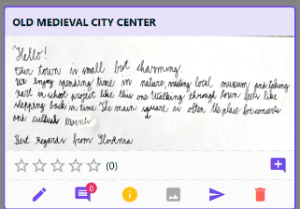 OLD MEDIEVAL CITY CENTER
Hello!
Our town is small but charming
We enjoy spending time in nature, visiting local museum and taking
part in school project like this one. Walking through town feels like
stepping back in time. The main square is often the place for concerts
and cultural events
Best regards from Slovenia
(0)
0